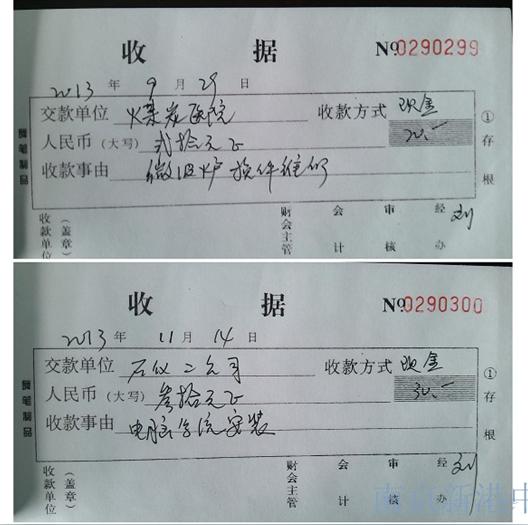 收 据 № 0290299
2013 年 9 月 29 日
交款单位 煤炭医院 收款方式 现金
人民币(大写) 贰拾元正 20.—
收款事由 微波炉换件维修
①存根
收款单位(盖章) 财会主管 会计 审核 经办 刘
收 据 № 0290300
2013 年 11 月 14 日
交款单位 石仪二公司 收款方式 现金
人民币(大写) 叁拾元正 30.—
收款事由 电脑系统安装
①存根
收款单位(盖章) 财会主管 会计 审核 经办 刘
南京新港中